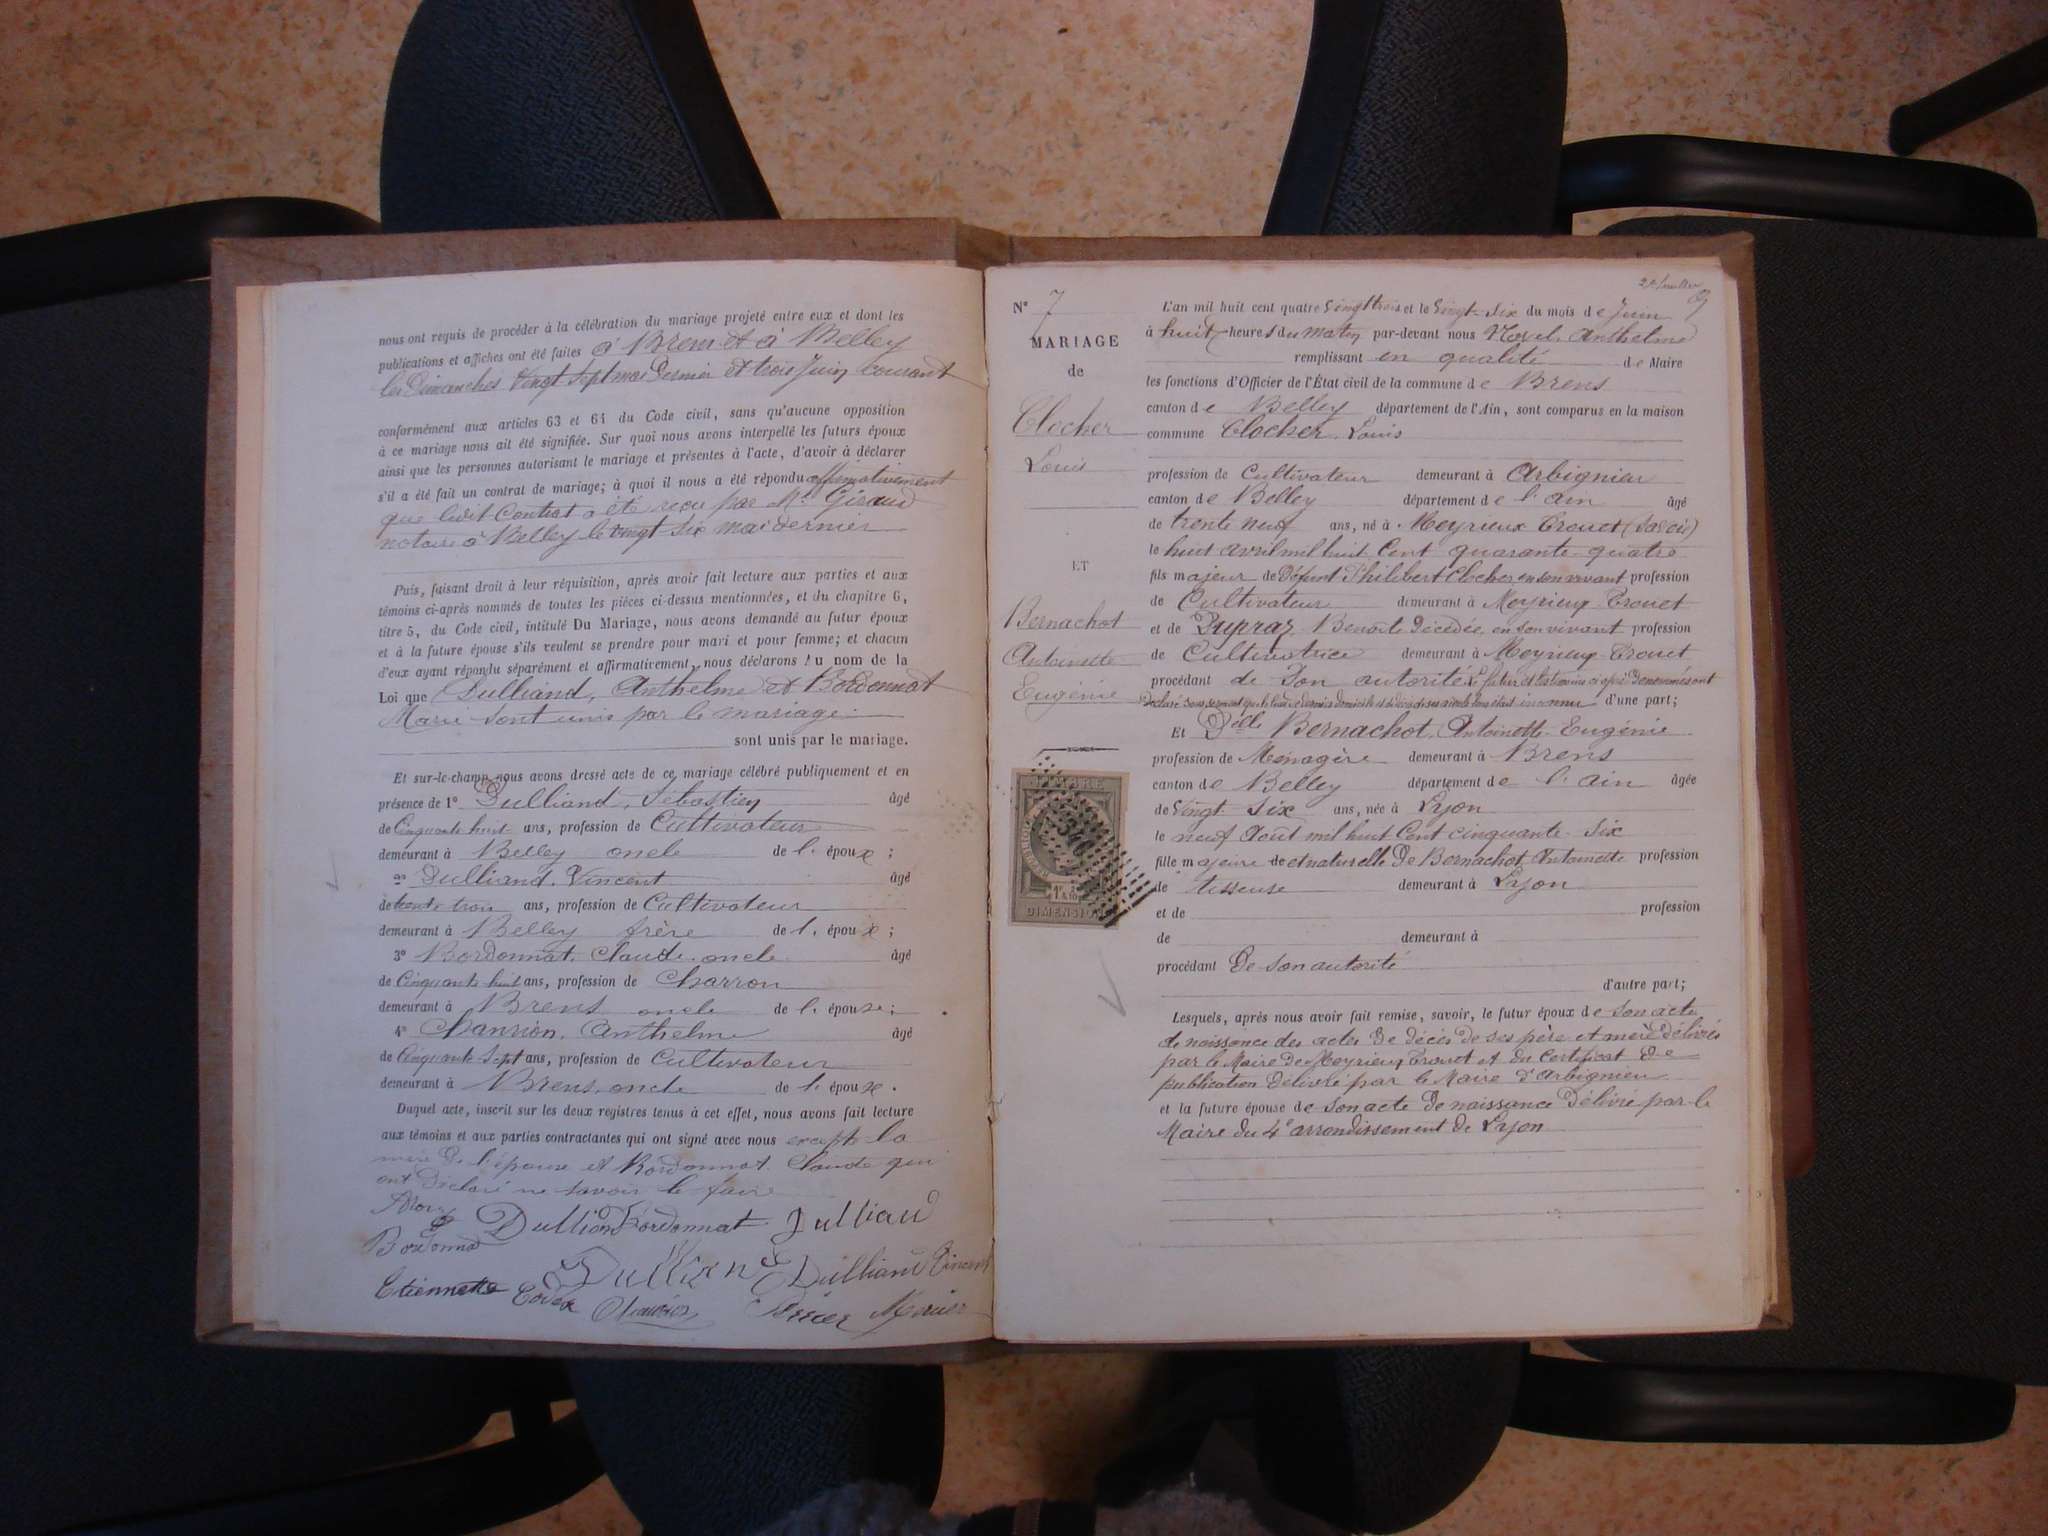 nous ont requis de procéder à la célébration du mariage projeté entre eux et dont les
publications et affiches ont été faites à Brens et à Belley
les Dimanches Vingt Sept mai Dernier et trois Juin courant
conformément aux articles 63 et 64 du Code civil, sans qu'aucune opposition
à ce mariage nous ait été signifiée. Sur quoi nous avons interpellé les futurs époux
ainsi que les personnes autorisant le mariage et présentes à l'acte, d'avoir à déclarer
s'il a été fait un contrat de mariage; à quoi il nous a été répondu affirmativement
que ledit Contrat a été reçu par Me Giraud
notaire à Belley le vingt-six mai dernier
Puis, faisant droit à leur réquisition, après avoir fait lecture aux parties et aux
témoins ci-après nommés de toutes les pièces ci-dessus mentionnées, et du chapitre 6,
titre 5, du Code civil, intitulé Du Mariage, nous avons demandé au futur époux
et à la future épouse s'ils veulent se prendre pour mari et pour femme; et chacun
d'eux ayant répondu séparément et affirmativement, nous déclarons au nom de la
Loi que Dulliand, Anthelme et Bordonnat
Marie sont unis par le mariage
sont unis par le mariage.
Et sur-le-champ nous avons dressé acte de ce mariage célébré publiquement et en
présence de 1° Dulliand, Sébastien âgé
de Cinquante huit ans, profession de Cultivateur
demeurant à Belley oncle de l' époux;
2° Dulliand, Vincent âgé
de trente trois ans, profession de Cultivateur
demeurant à Belley frère de l' époux;
3° Bordonnat, Claude oncle âgé
de Cinquante huit ans, profession de Charron
demeurant à Brens oncle de l' épouse;
4° Chanrion, Anthelme âgé
de Cinquante Sept ans, profession de Cultivateur
demeurant à Brens, oncle de l' époux.
Duquel acte, inscrit sur les deux registres tenus à cet effet, nous avons fait lecture
aux témoins et aux parties contractantes qui ont signé avec nous excepté la
mère de l'épouse et Bordonnat Claude qui
ont déclaré ne savoir le faire
Bordonnat Dullian Bordonnat Julliand
Dullian Dulliand Vincent
Etiennette
N° 7
MARIAGE
de
Clocher
Louis
ET
Bernachot
Antoinette
Eugénie
TIMBRE
DIMENSION
L'an mil huit cent quatre Vingt trois et le Vingt-Six du mois de Juin
à huit heures du Matin par-devant nous Anthelme
remplissant en qualité de Maire
les fonctions d'Officier de l'État civil de la commune de Brens
canton de Belley département de l'Ain, sont comparus en la maison
commune Clocher, Louis
profession de Cultivateur demeurant à Arbignieu
canton de Belley département de l'Ain âgé
de trente neuf ans, né à Meyrieux Trouet (Savoie)
le huit avril mil huit Cent quarante-quatre
fils majeur de Défunt Philibert Clocher, en son vivant profession
de Cultivateur demeurant à Meyrieux-Trouet
et de Dupraz, Benoîte décédée, en son vivant profession
de Cultivatrice demeurant à Meyrieux-Trouet
procédant de Son autorité, Le futur et les témoins ci après Dénommés ont
Déclaré sous serment que le lieu de dernier domicile et de décès de ses aïeuls leur était inconnu d'une part;
Et Delle Bernachot, Antoinette-Eugénie
profession de Ménagère demeurant à Brens
canton de Belley département de l'Ain âgée
de Vingt Six ans, née à Lyon
le neuf Août mil huit Cent cinquante-Six
fille majeure et naturelle De Bernachot Antoinette profession
de tisseuse demeurant à Lyon
et de profession
de demeurant à
procédant De son autorité
d'autre part;
Lesquels, après nous avoir fait remise, savoir, le futur époux de son acte
de naissance des actes de Décès de ses père et mère délivrés
par le Maire de Meyrieux Trouet et du Certificat de
publication délivré par le Maire d'Arbignieu
et la future épouse de son acte de naissance délivré par le
Maire du 4e arrondissement de Lyon